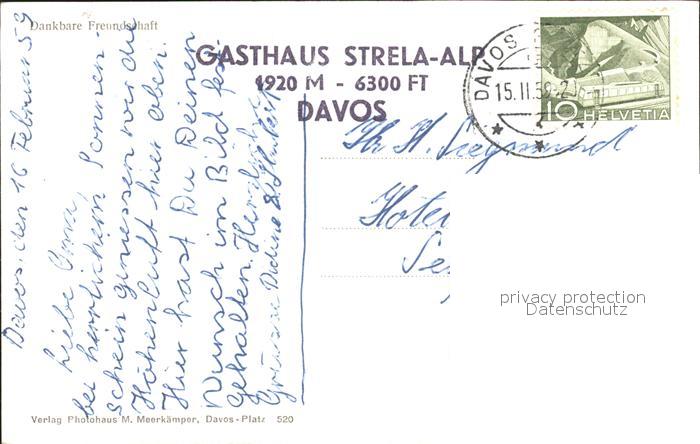 Dankbare Freundschaft
GASTHAUS STRELA-ALP
1920 M - 6300 FT
DAVOS
DAVOS
15.II.59-2
10 HELVETIA
Davos, den 16 Februar 59
Liebe Oma,
bei herrlichem Sonnen-
schein geniessen wir die
Höhenluft hier oben.
Hier hast Du Deinen
Wunsch im Bild fest-
gehalten. Herzliche
Grüsse
H. Siegmund
Hote
Se
privacy protection
Datenschutz
Verlag Photohaus M. Meerkämper, Davos-Platz 520